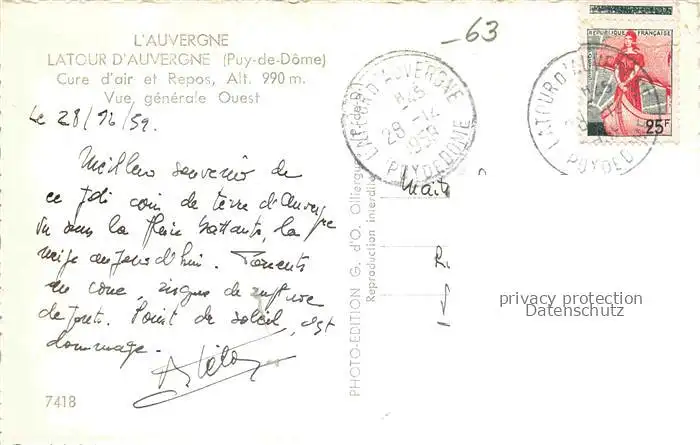 L'AUVERGNE
LATOUR D'AUVERGNE (Puy-de-Dôme)
Cure d'air et Repos, Alt. 990 m.
Vue générale Ouest
Le 28/12/59.
Meilleur souvenir de
ce joli coin de terre d'Auvergne
vu sous la pluie battante, la
neige aujourd'hui. Torrents
en crue, risque de rupture
de ponts. Point de soleil, c'est
dommage.
7418
PHOTO-EDITION G. d'O. Ollierques
Reproduction interdite
-63
LATOUR D'AUVERGNE
28-12
PUY DE DOME
REPUBLIQUE FRANÇAISE
25F
LATOUR D'AUVE
PUY DE D
R.
privacy protection
Datenschutz